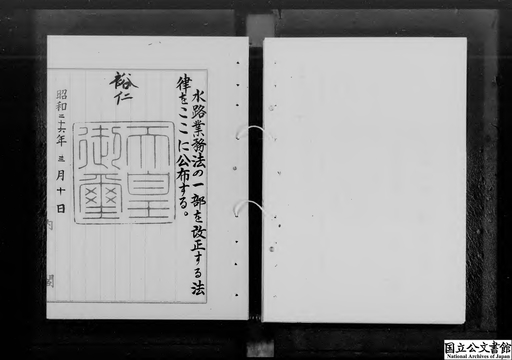 水路業務法の一部を改正する法
律をここに公布する。
裕仁
天皇
御璽
昭和二十六年三月十日
内閣
国立公文書館
National Archives of Japan